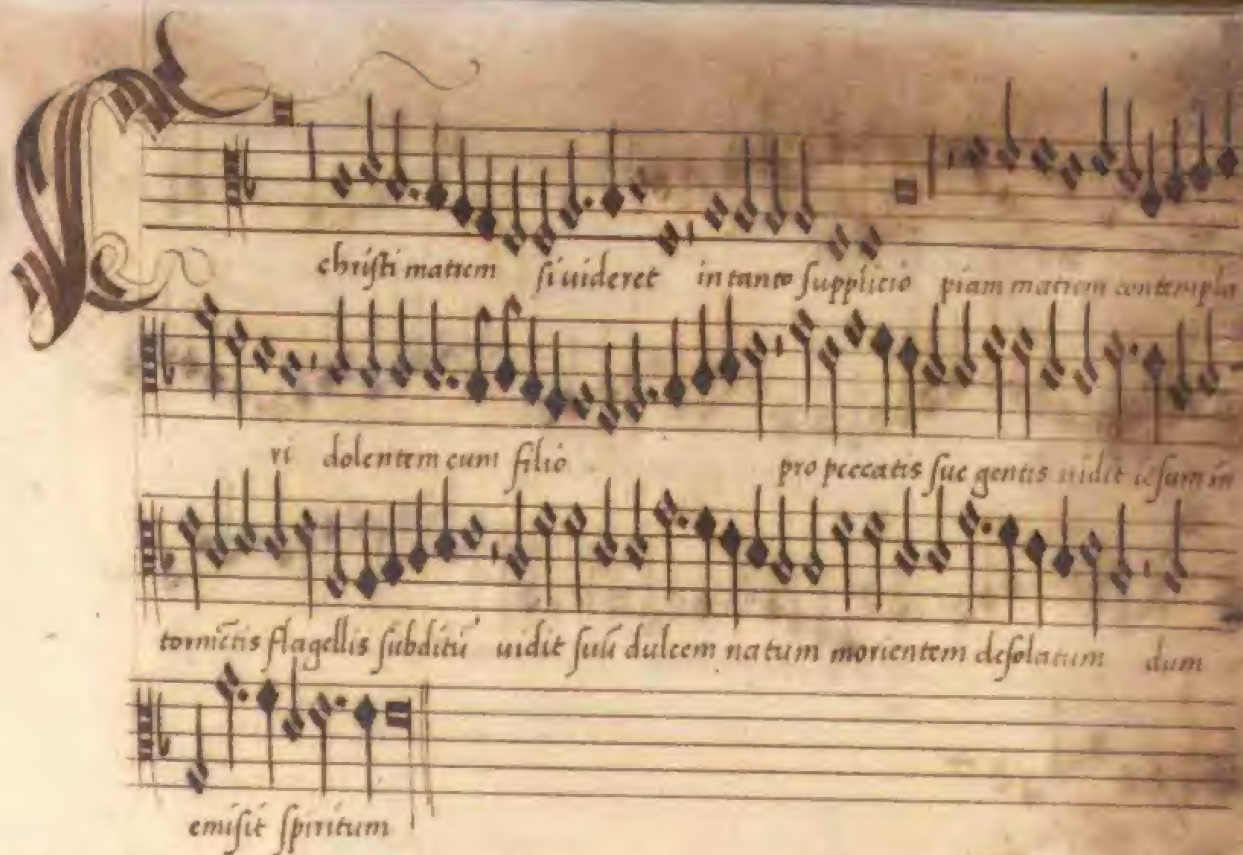 christi matrem si uideret in tanto supplicio piam matrem contempla
ri dolentem cum filio pro peccatis sue gentis uidit iesum in
tormẽtis flagellis subditũ uidit suũ dulcem natum morientem desolatum dum
emisit spiritum